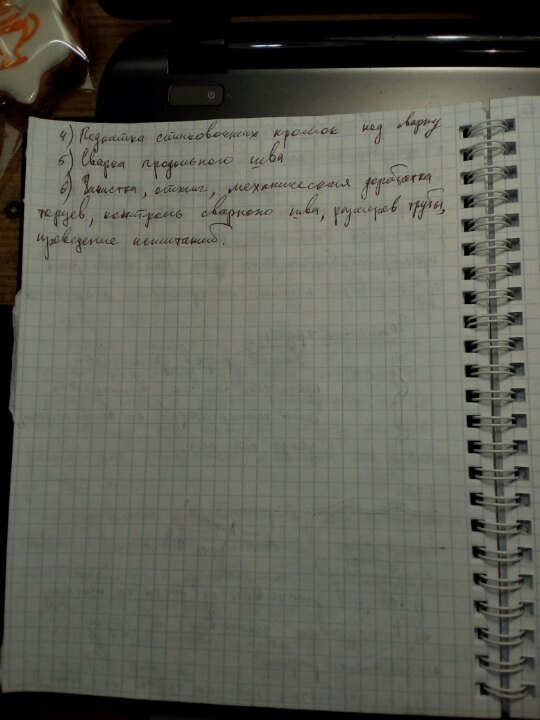 4) Подгонка стыковочных кромок под сварку
5) Сварка продольного шва
6) Зачистка, отжиг, механическая доработка
торцев, контроль сварного шва, размеров трубы,
проведение испытаний.